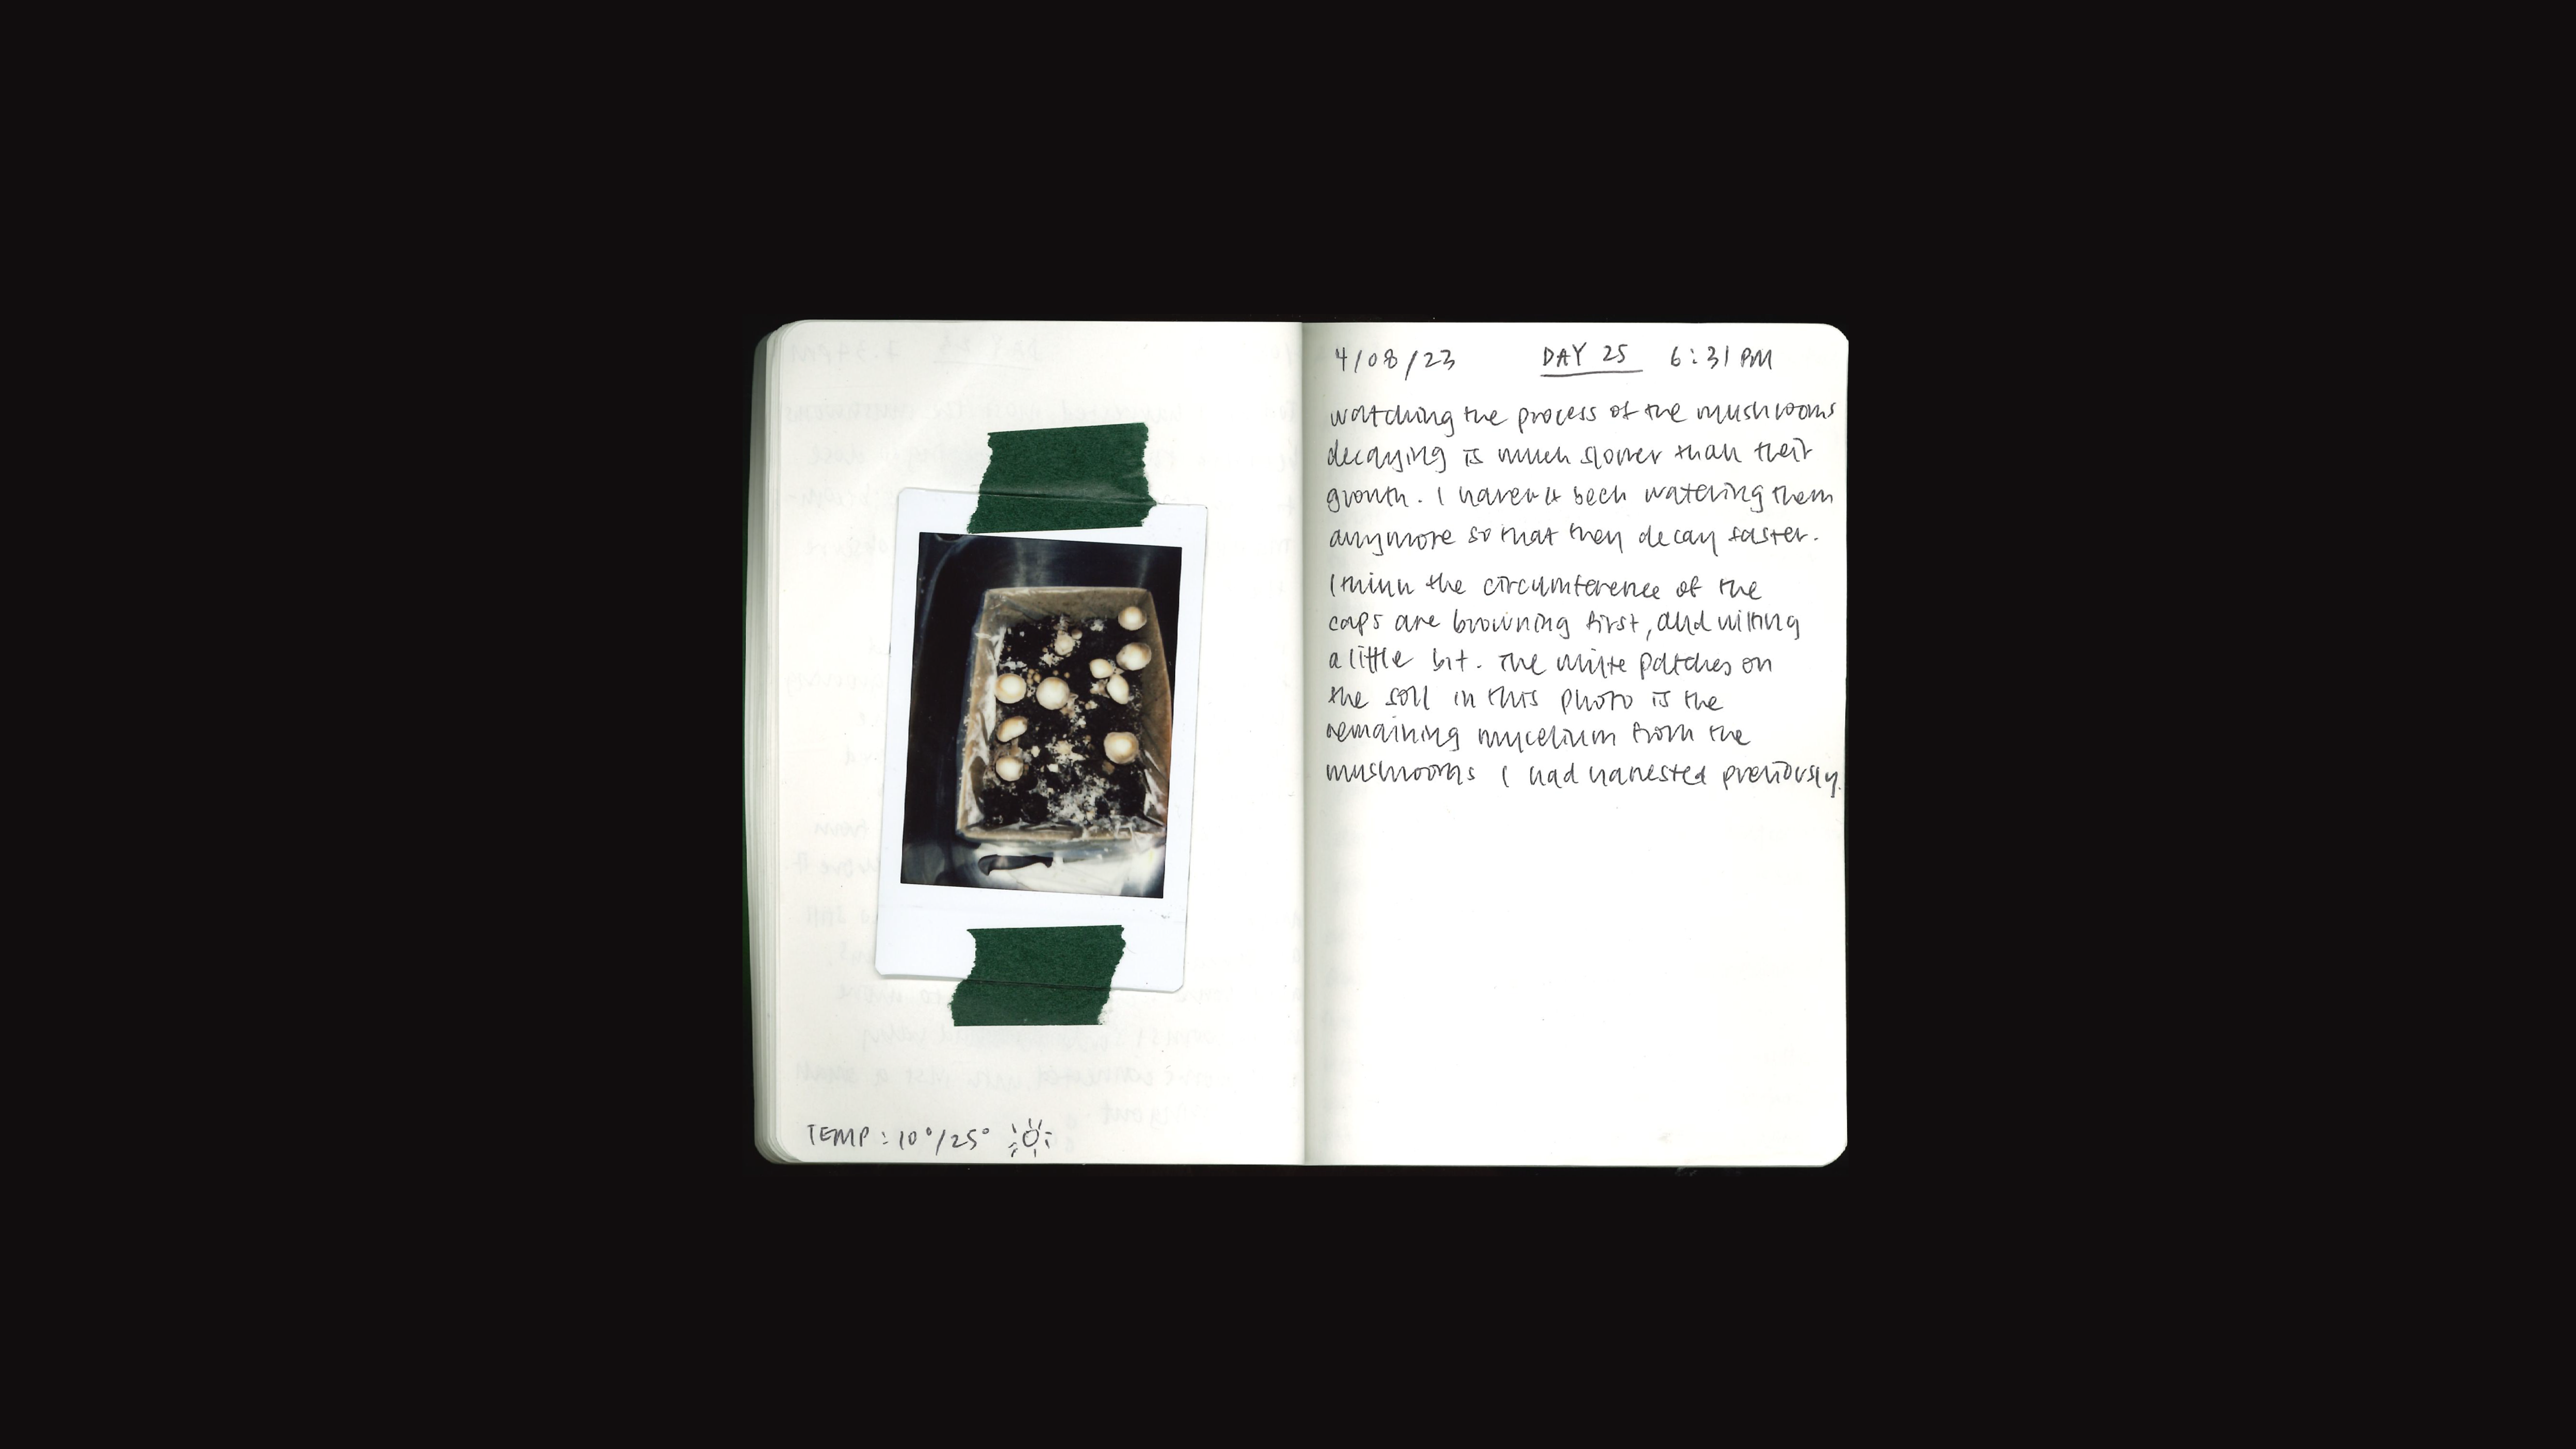 TEMP : 10°/25°
4/08/23 DAY 25 6:31 PM
watching the process of the mushrooms
decaying is much slower than their
growth. I haven't been watering them
anymore so that they decay faster.
I think the circumference of the
caps are browning first, and wilting
a little bit. The white patches on
the soil in this photo is the
remaining mycelium from the
mushrooms I had harvested previously.